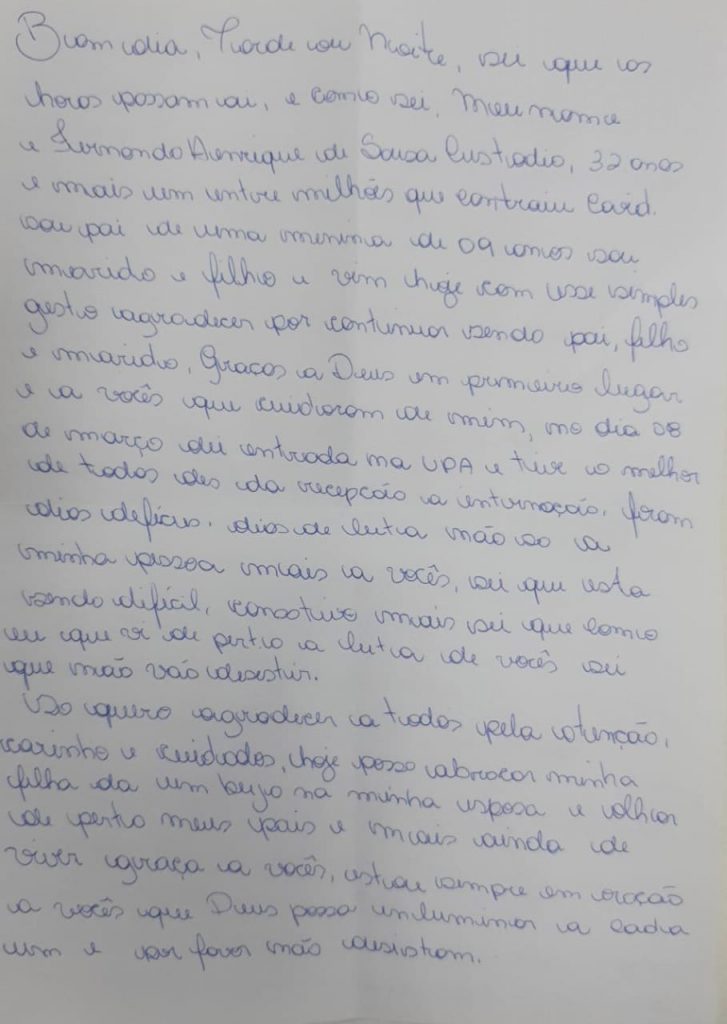 Bom dia, Tarde ou Noite, sei que as
horas passam ai, e como sei. Meu nome
e Fernando Henrique de Sousa Custodio, 32 anos
e mais um entre milhões que contraiu Covid.
sou pai de uma menina de 09 anos sou
marido e filho e vim hoje com esse simples
gesto agradecer por continuar sendo pai, filho
e marido, Graças a Deus em primeiro lugar
e a vocês que cuidaram de mim, no dia 08
de março dei entrada na UPA e tive o melhor
de todos des da recepção a internação, foram
dias defíceis, dias de luta não so a
minha pessoa mais a vocês, sei que esta
sendo defícil, cansativo mais sei que como
eu que vi de perto a luta de vocês sei
que não vão desistir.
So quero agradecer a todos pela atenção,
carinho e cuidados, hoje posso abraçar minha
filha da um beijo na minha esposa e olhar
de perto meus pais e mais ainda de
viver graça a vocês, estou sempre em oração
a vocês que Deus possa inluminar a cada
um e por favor não desistam.